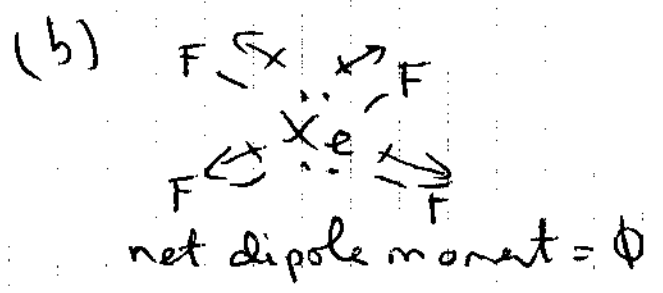 (b) F F
Xe
F F
net dipole moment = 0